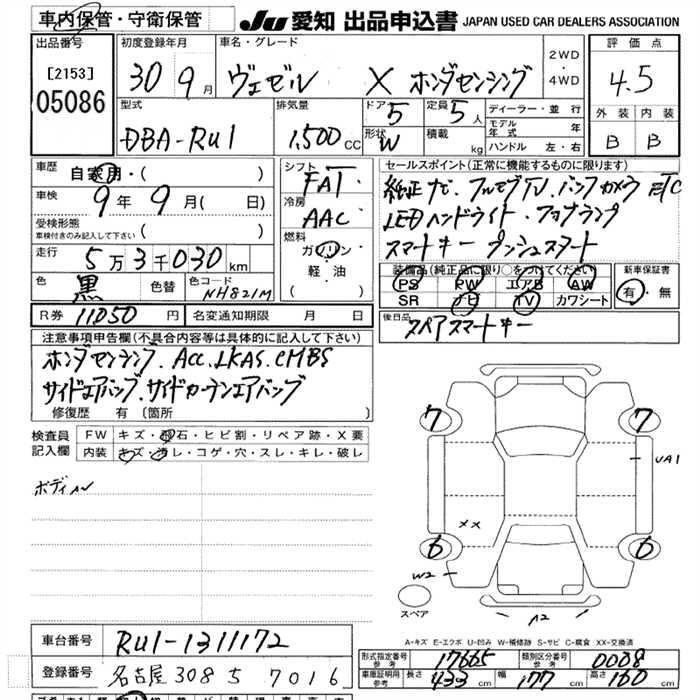 車内保管・守衛保管 JU 愛知 出品申込書 JAPAN USED CAR DEALERS ASSOCIATION
出品番号 [2153] 05086
初度登録年月 30 9月
車名・グレード ヴェゼル X ホンダセンシング
2WD・4WD
評価点 4.5
外装 B 内装 B
型式 DBA-RU1
排気量 1,500 CC
ドア 5 形状 W
定員 5人 積載 kg
ディーラー・並行
モデル年式 年
ハンドル 左・右
車歴 自家用・( )
車検 9年 9月( 日)
受検形態 車検付きのみ記入して下さい ( )
走行 5万3千030km
色 黒 色替 色コード NH821M
シフト FAT
冷房 AAC
燃料 ガソリン・軽油・( )
セールスポイント(正常に機能するものに限ります)
純正ナビ.フルセグTV.バックカメラ ETC
LEDヘッドライト.フォグランプ
スマートキー プッシュスタート
装備品(純正品に限り○をつけてください)
PS PW エアB AW
SR ナビ TV カワシート
新車保証書 有・無
後日品 スペアスマートキー
R券 11050円 名変通知期限 月 日
注意事項申告欄(不具合内容等は具体的に記入して下さい)
ホンダセンシング.ACC.LKAS.CMBS
サイドエアバッグ.サイドカーテンエアバッグ
修復歴 有(箇所 )
検査員記入欄
FW キズ・飛石・ヒビ割・リペア跡・X要
内装 キズ・汚レ・コゲ・穴・スレ・キレ・破レ
ボディ
7 7
UA1
XX
6 6
W2
スペア A2
A-キズ E-エクボ U-凹み W-補修跡 S-サビ C-腐食 XX-交換済
車台番号 RU1-1311172
登録番号 名古屋 308 ち 7016
型式指定番号 参考 17665 類別区分番号 参考 0008
車庫証明用 参考 長さ 433cm 幅 177cm 高さ 160cm